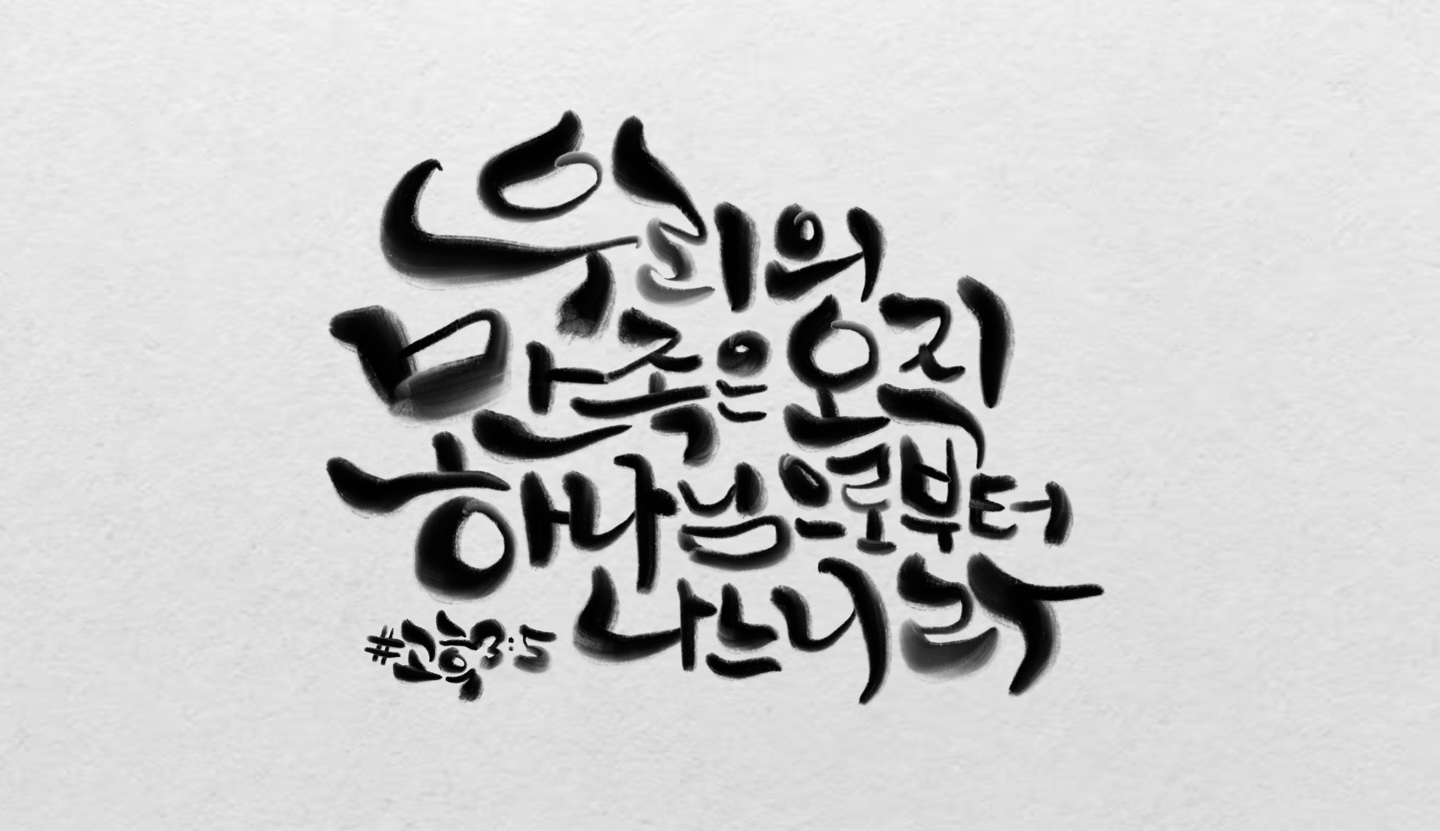 우리의
만족은 오직
하나님으로부터
나느니라
#고후3:5